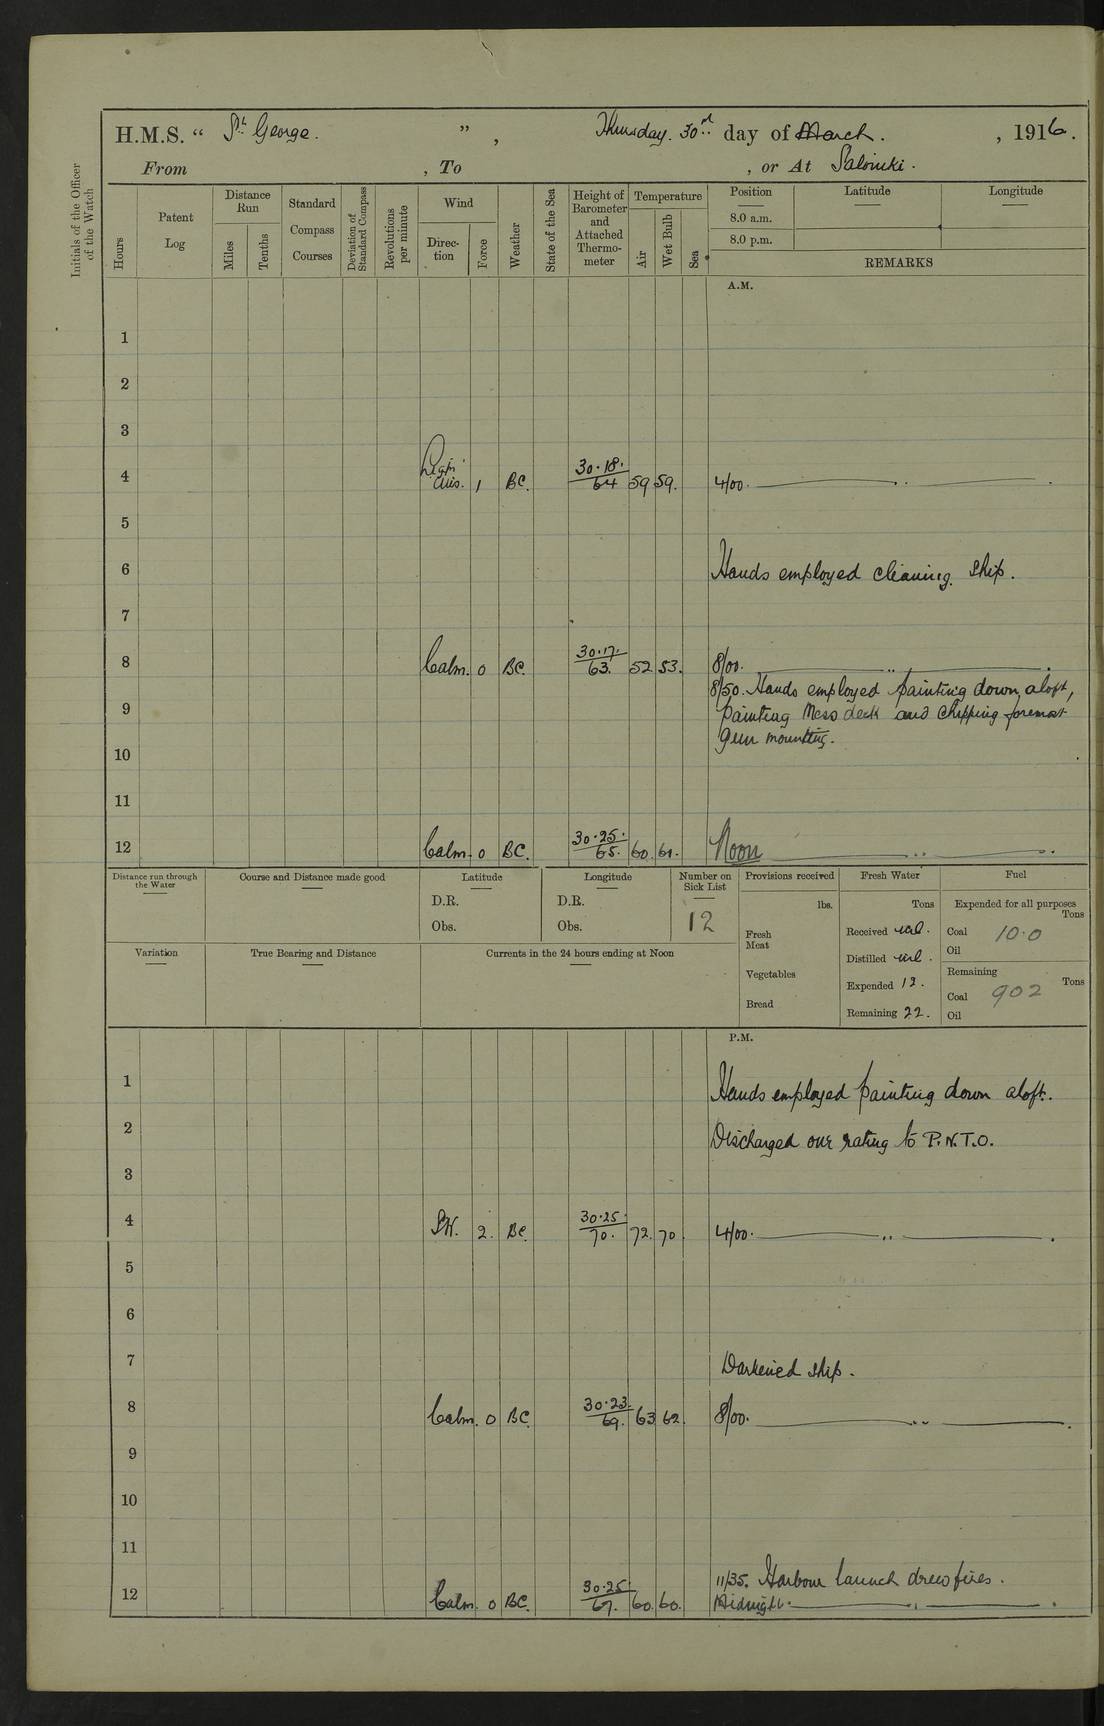 H.M.S. “ St. George. ” , Thursday. 30th day of March. , 1916.
From , To , or At Salonicki.
Initials of the Officer of the Watch
Hours
Patent Log
Distance Run
Miles
Tenths
Standard Compass Courses
Deviation of Standard Compass
Revolutions per minute
Wind
Direction
Force
Weather
State of the Sea
Height of Barometer and Attached Thermometer
Temperature
Air
Wet Bulb
Sea
Position Latitude Longitude
8.0 a.m.
8.0 p.m.
REMARKS
A.M.
1
2
3
4 Light Airs. 1 BC. 30.18. 64 59 59. 4/00. ——— ,, ———.
5
6 Hands employed cleaning ship.
7
8 Calm. 0 BC. 30.17. 63. 52 53. 8/00. ——— ,, ———.
8/50. Hands employed painting down aloft,
9 painting Mess deck and chipping foremost
gun mounting.
10
11
12 Calm. 0 BC. 30.25. 65. 60. 61. Noon ——— ,, ———.
Distance run through the Water
Course and Distance made good
Latitude
D.R.
Obs.
Longitude
D.R.
Obs.
Number on Sick List
12
Provisions received
lbs.
Fresh Meat
Vegetables
Bread
Fresh Water
Tons
Received nil.
Distilled nil.
Expended 12.
Remaining 22.
Fuel
Expended for all purposes
Tons
Coal 10.0
Oil
Remaining
Tons
Coal 902
Oil
Variation
True Bearing and Distance
Currents in the 24 hours ending at Noon
P.M.
1 Hands employed painting down aloft.
2 Discharged one rating to P.N.T.O.
3
4 SW. 2. BC. 30.25 70. 72. 70. 4/00. ——— ,, ———.
5
6
7 Darkened ship.
8 Calm. 0 BC. 30.23. 69. 63 62. 8/00. ——— ,, ———.
9
10
11
11/35. Harbour launch drew fires.
12 Calm. 0 BC. 30.25 67. 60. 60. Midnight. ——— ,, ———.